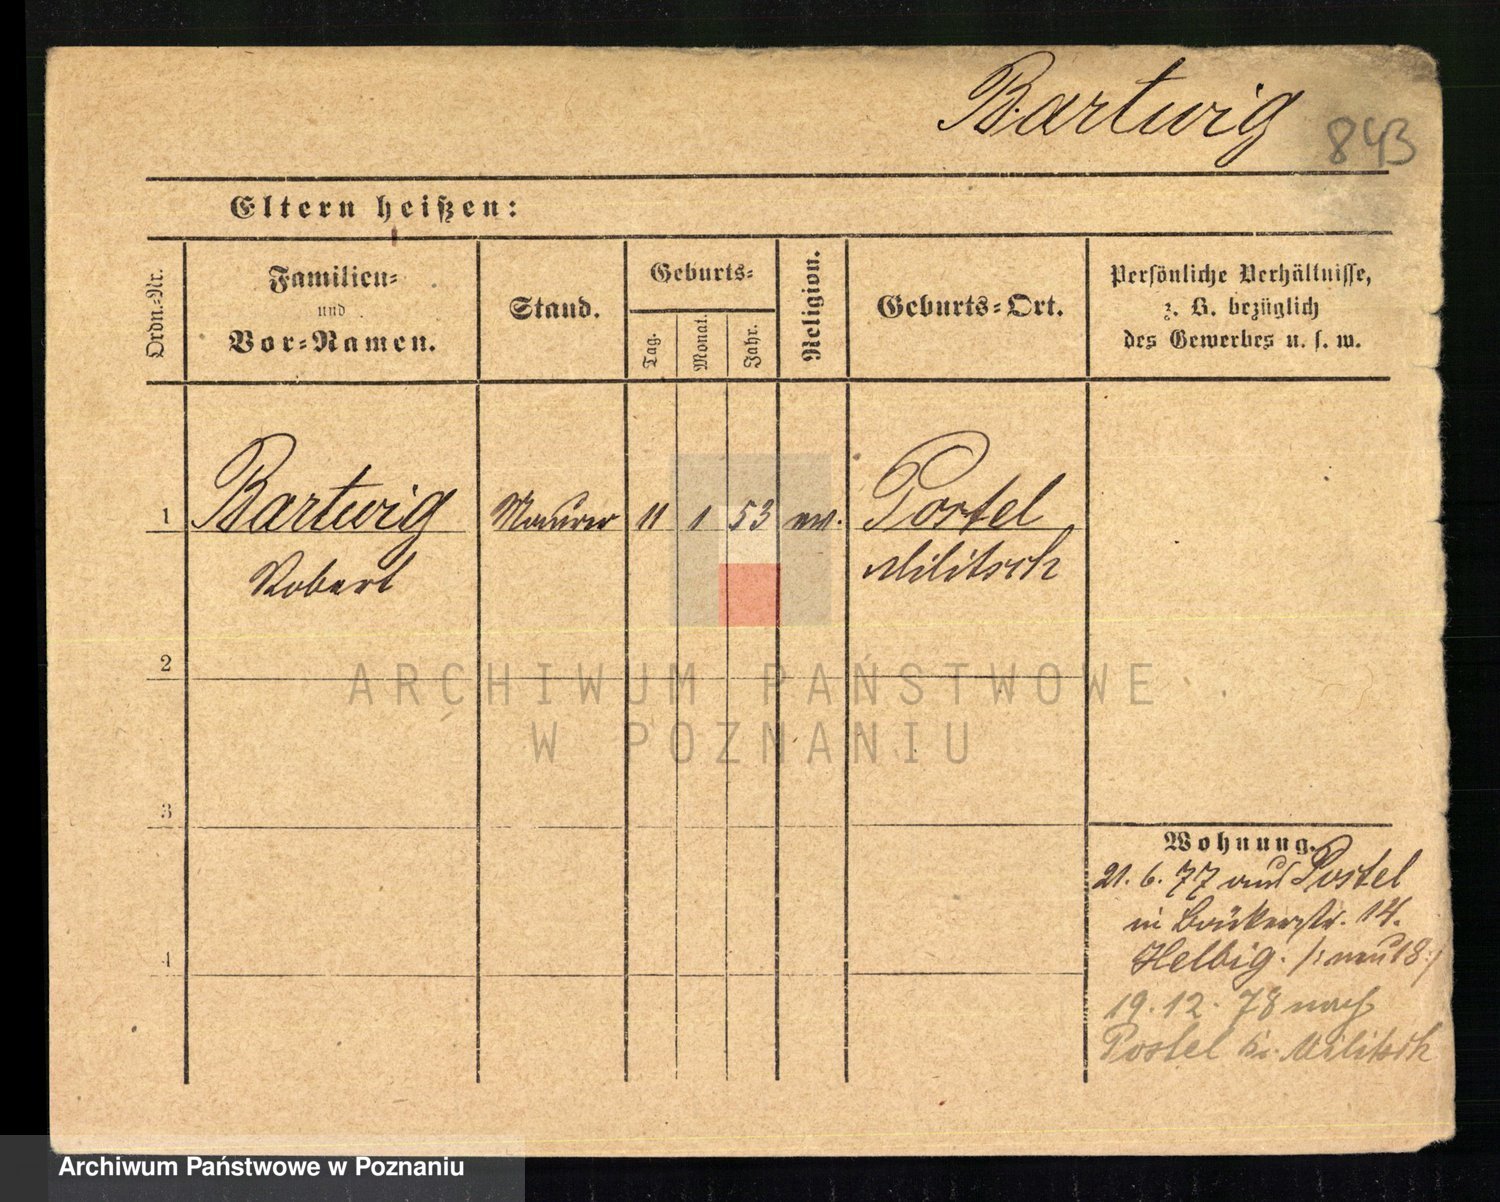 Bartwig
843
Eltern heißen:
Ordn.-Nr.
Familien-
und
Vor-Namen.
Stand.
Geburts-
Tag.
Monat.
Jahr.
Religion.
Geburts-Ort.
Persönliche Verhältnisse,
z. B. bezüglich
des Gewerbes u. s. w.
1 Bartwig Maurer 11 1 53 ev. Postel
Robert Militsch
2
ARCHIWUM PAŃSTWOWE
W POZNANIU
3
Wohnung.
21. 6. 77 aus Postel
in Bäckerstr. 14.
4
Helbig. /: neu 18 :/
19. 12. 78 nach
Postel Kr. Militsch
Archiwum Państwowe w Poznaniu